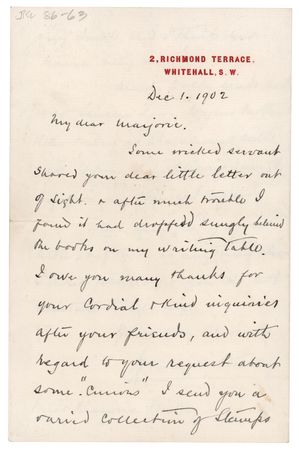 JU 86-63
2, RICHMOND TERRACE,
WHITEHALL, S.W.
Dec 1. 1902
My dear Marjorie.
Some wicked servant
shoved your dear little letter out
of sight. & after much trouble I
found it had dropped snugly behind
the books on my writing table.
I owe you many thanks for
your cordial & kind inquiries
after your friends, and with
regard to your request about
some "Curios" I send you a
varied collection of stamps